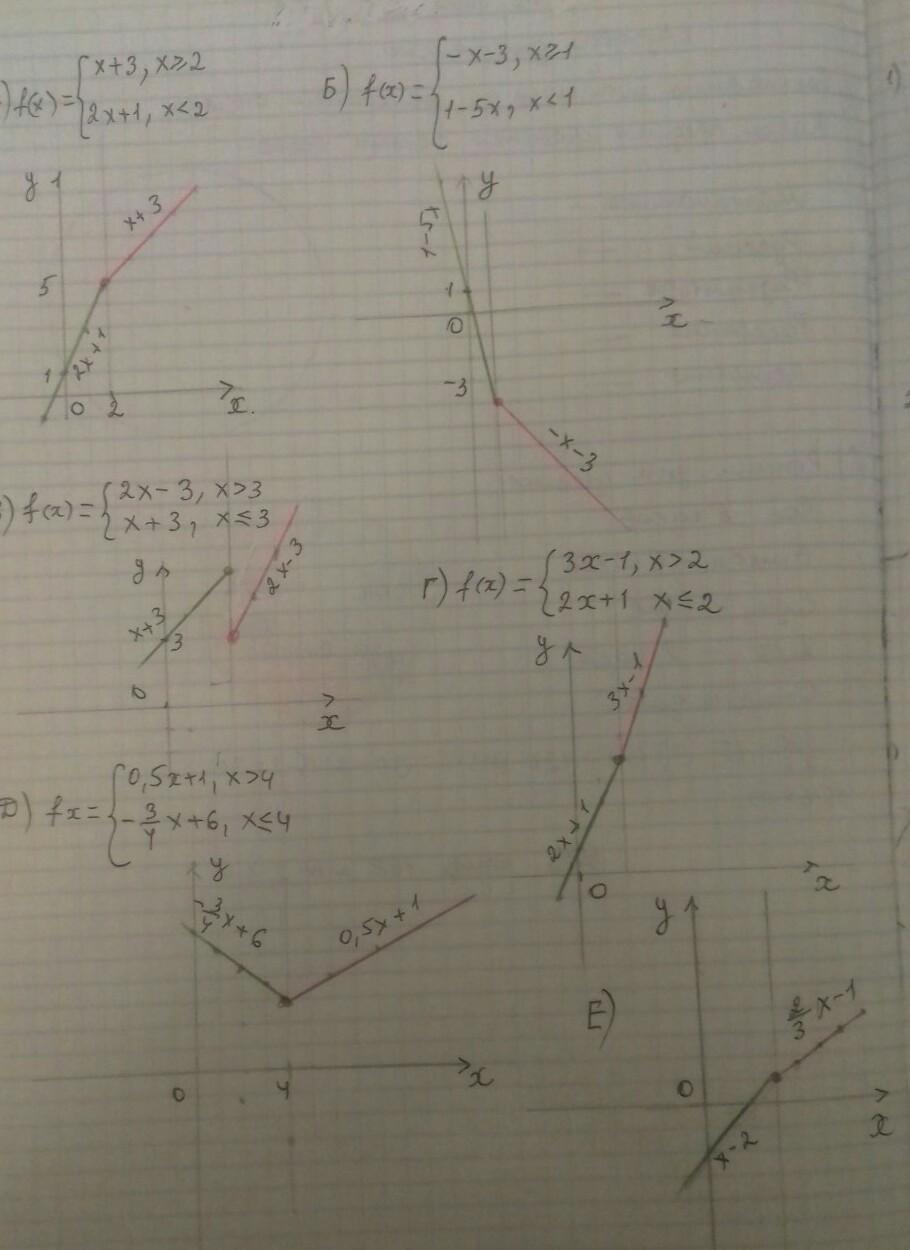 )f(x)={x+3, x≥2
2x+1, x<2
Б) f(x)={-x-3, x≥1
1-5x, x<1
1)
y 1
x+3
5
2x+1
1
0 2
x.
y
1
0
x
-3
-x-3
) f(x)={2x-3, x>3
x+3, x≤3
y
x+3
3
2x-3
0
x
Г) f(x)={3x-1, x>2
2x+1 x≤2
y
3x-1
2x+1
0
x
Д) fx={0,5x+1, x>4
-3/4x+6, x≤4
y
-3/4x+6
0,5x+1
0
4
x
Е)
y
2/3x-1
0
x-2
x